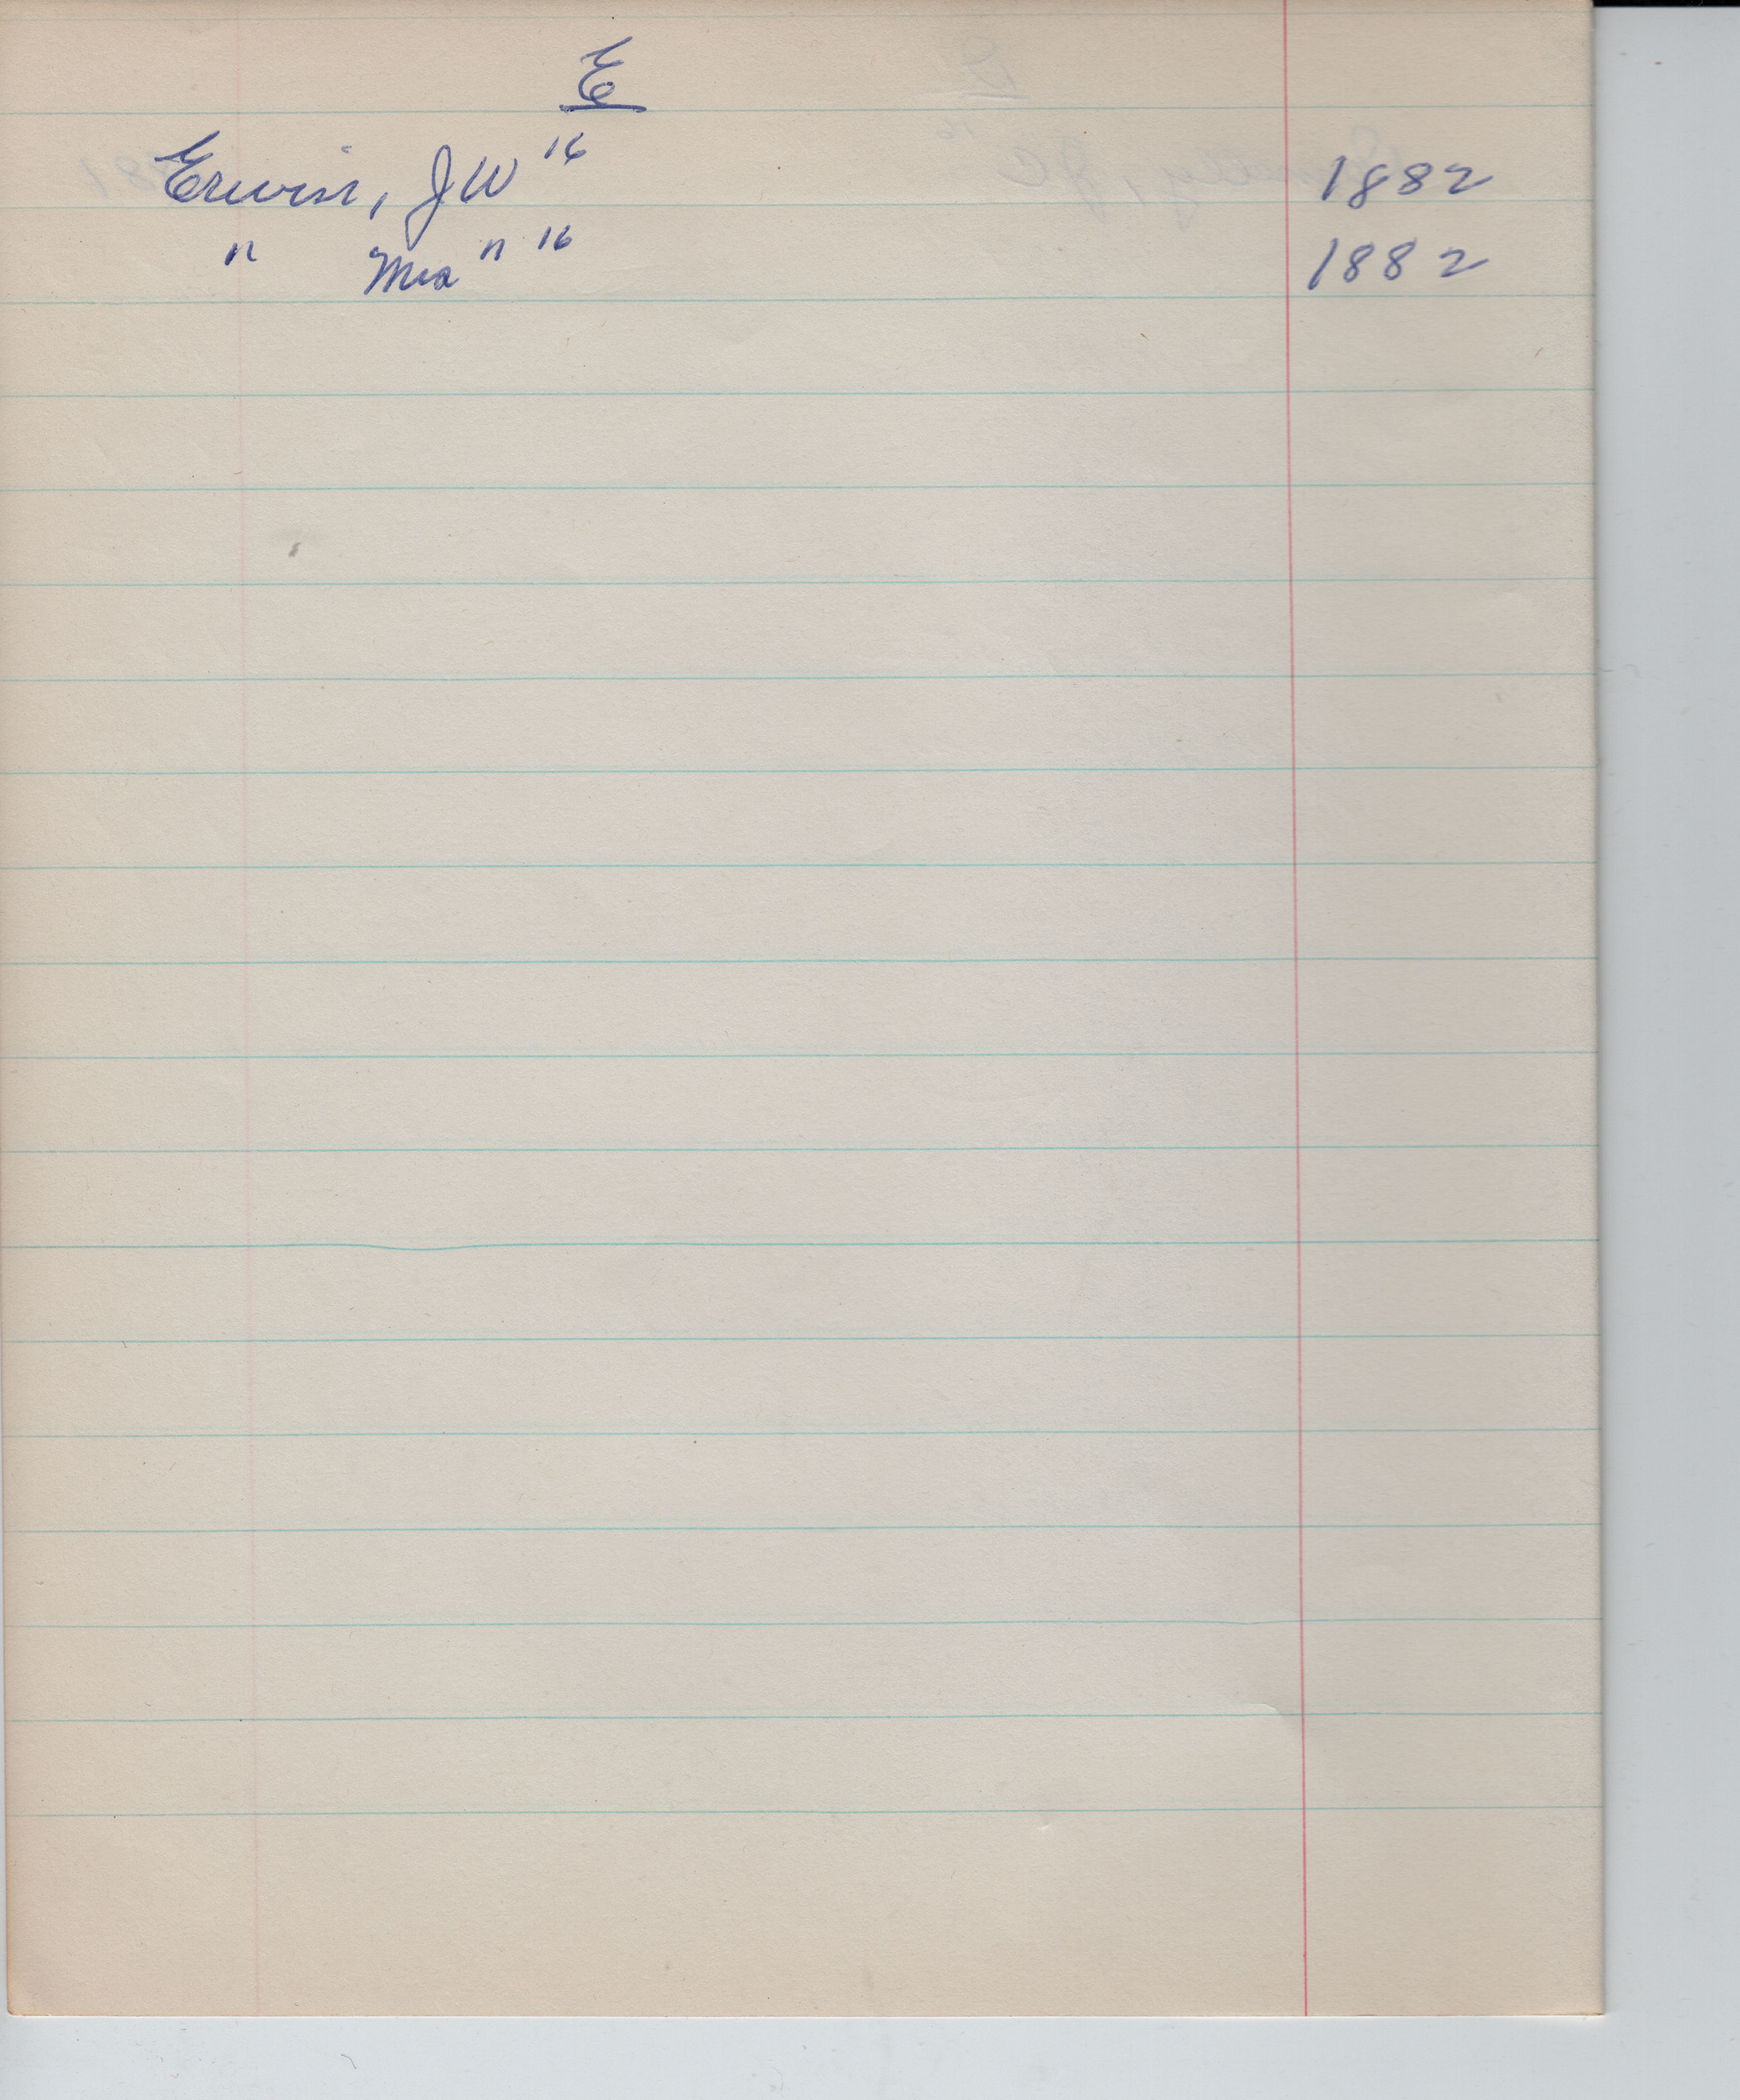 E
Erwin, JW 16 1882
" Mrs " 16 1882